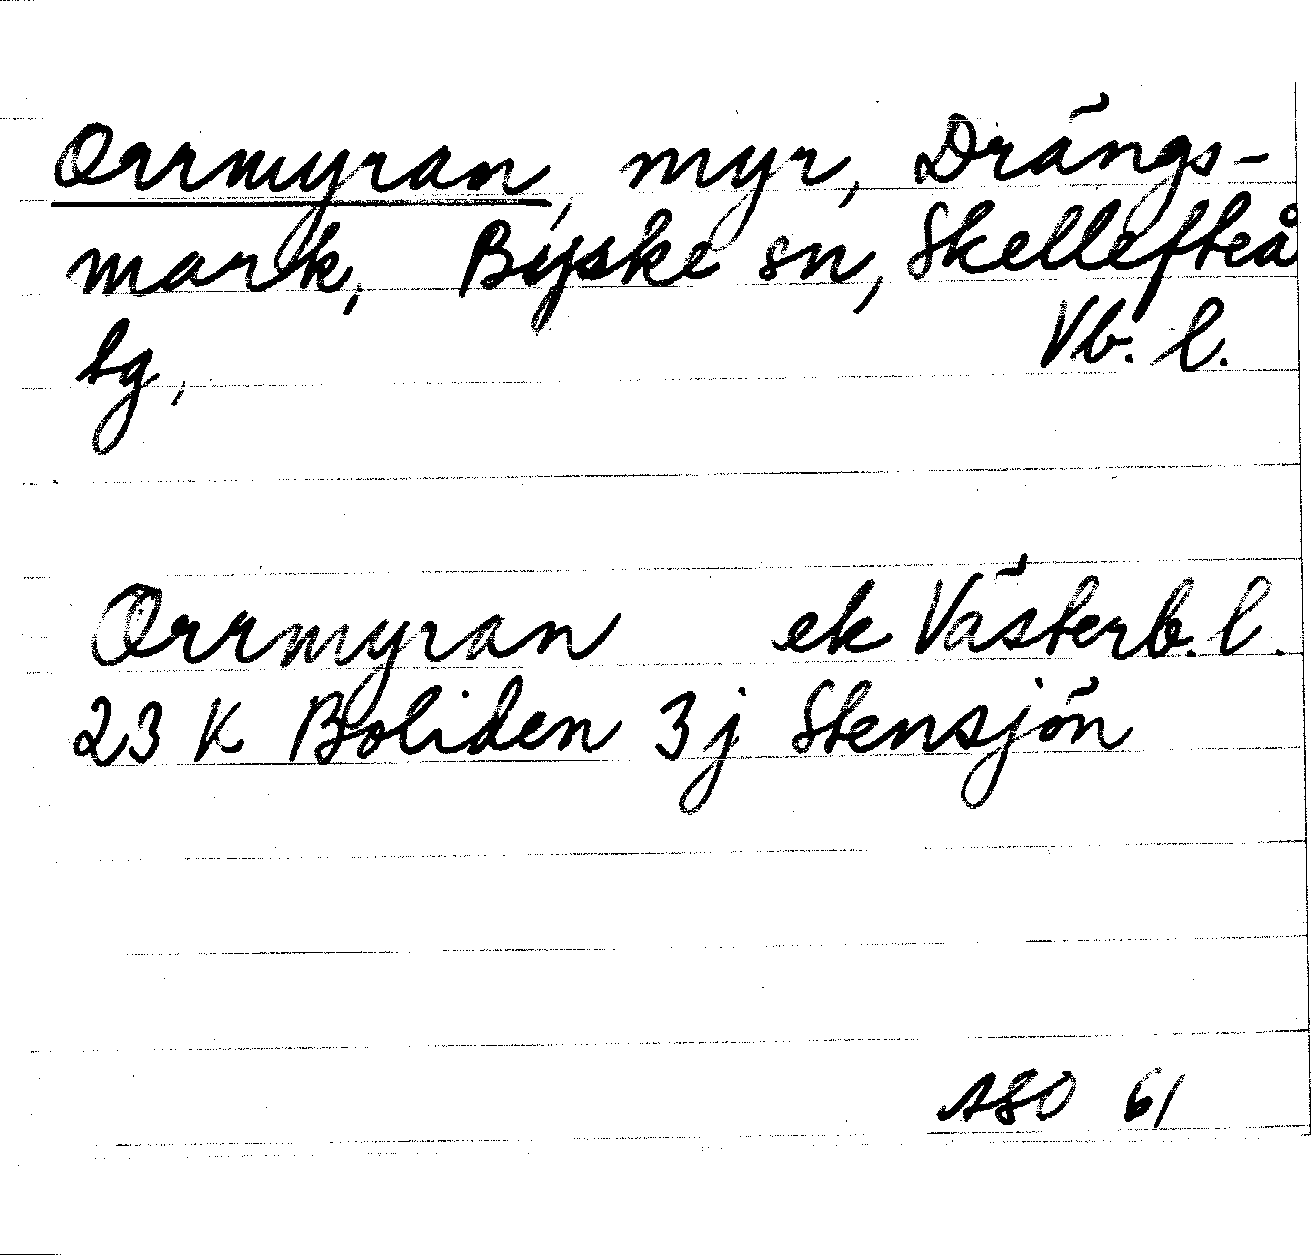 Orrmyran, myr, Drängs-
mark, Byske sn, Skellefteå
tg, Vb. l.
Orrmyran ek Västerb. l.
23 K Boliden 3j Stensjön
ASO 61